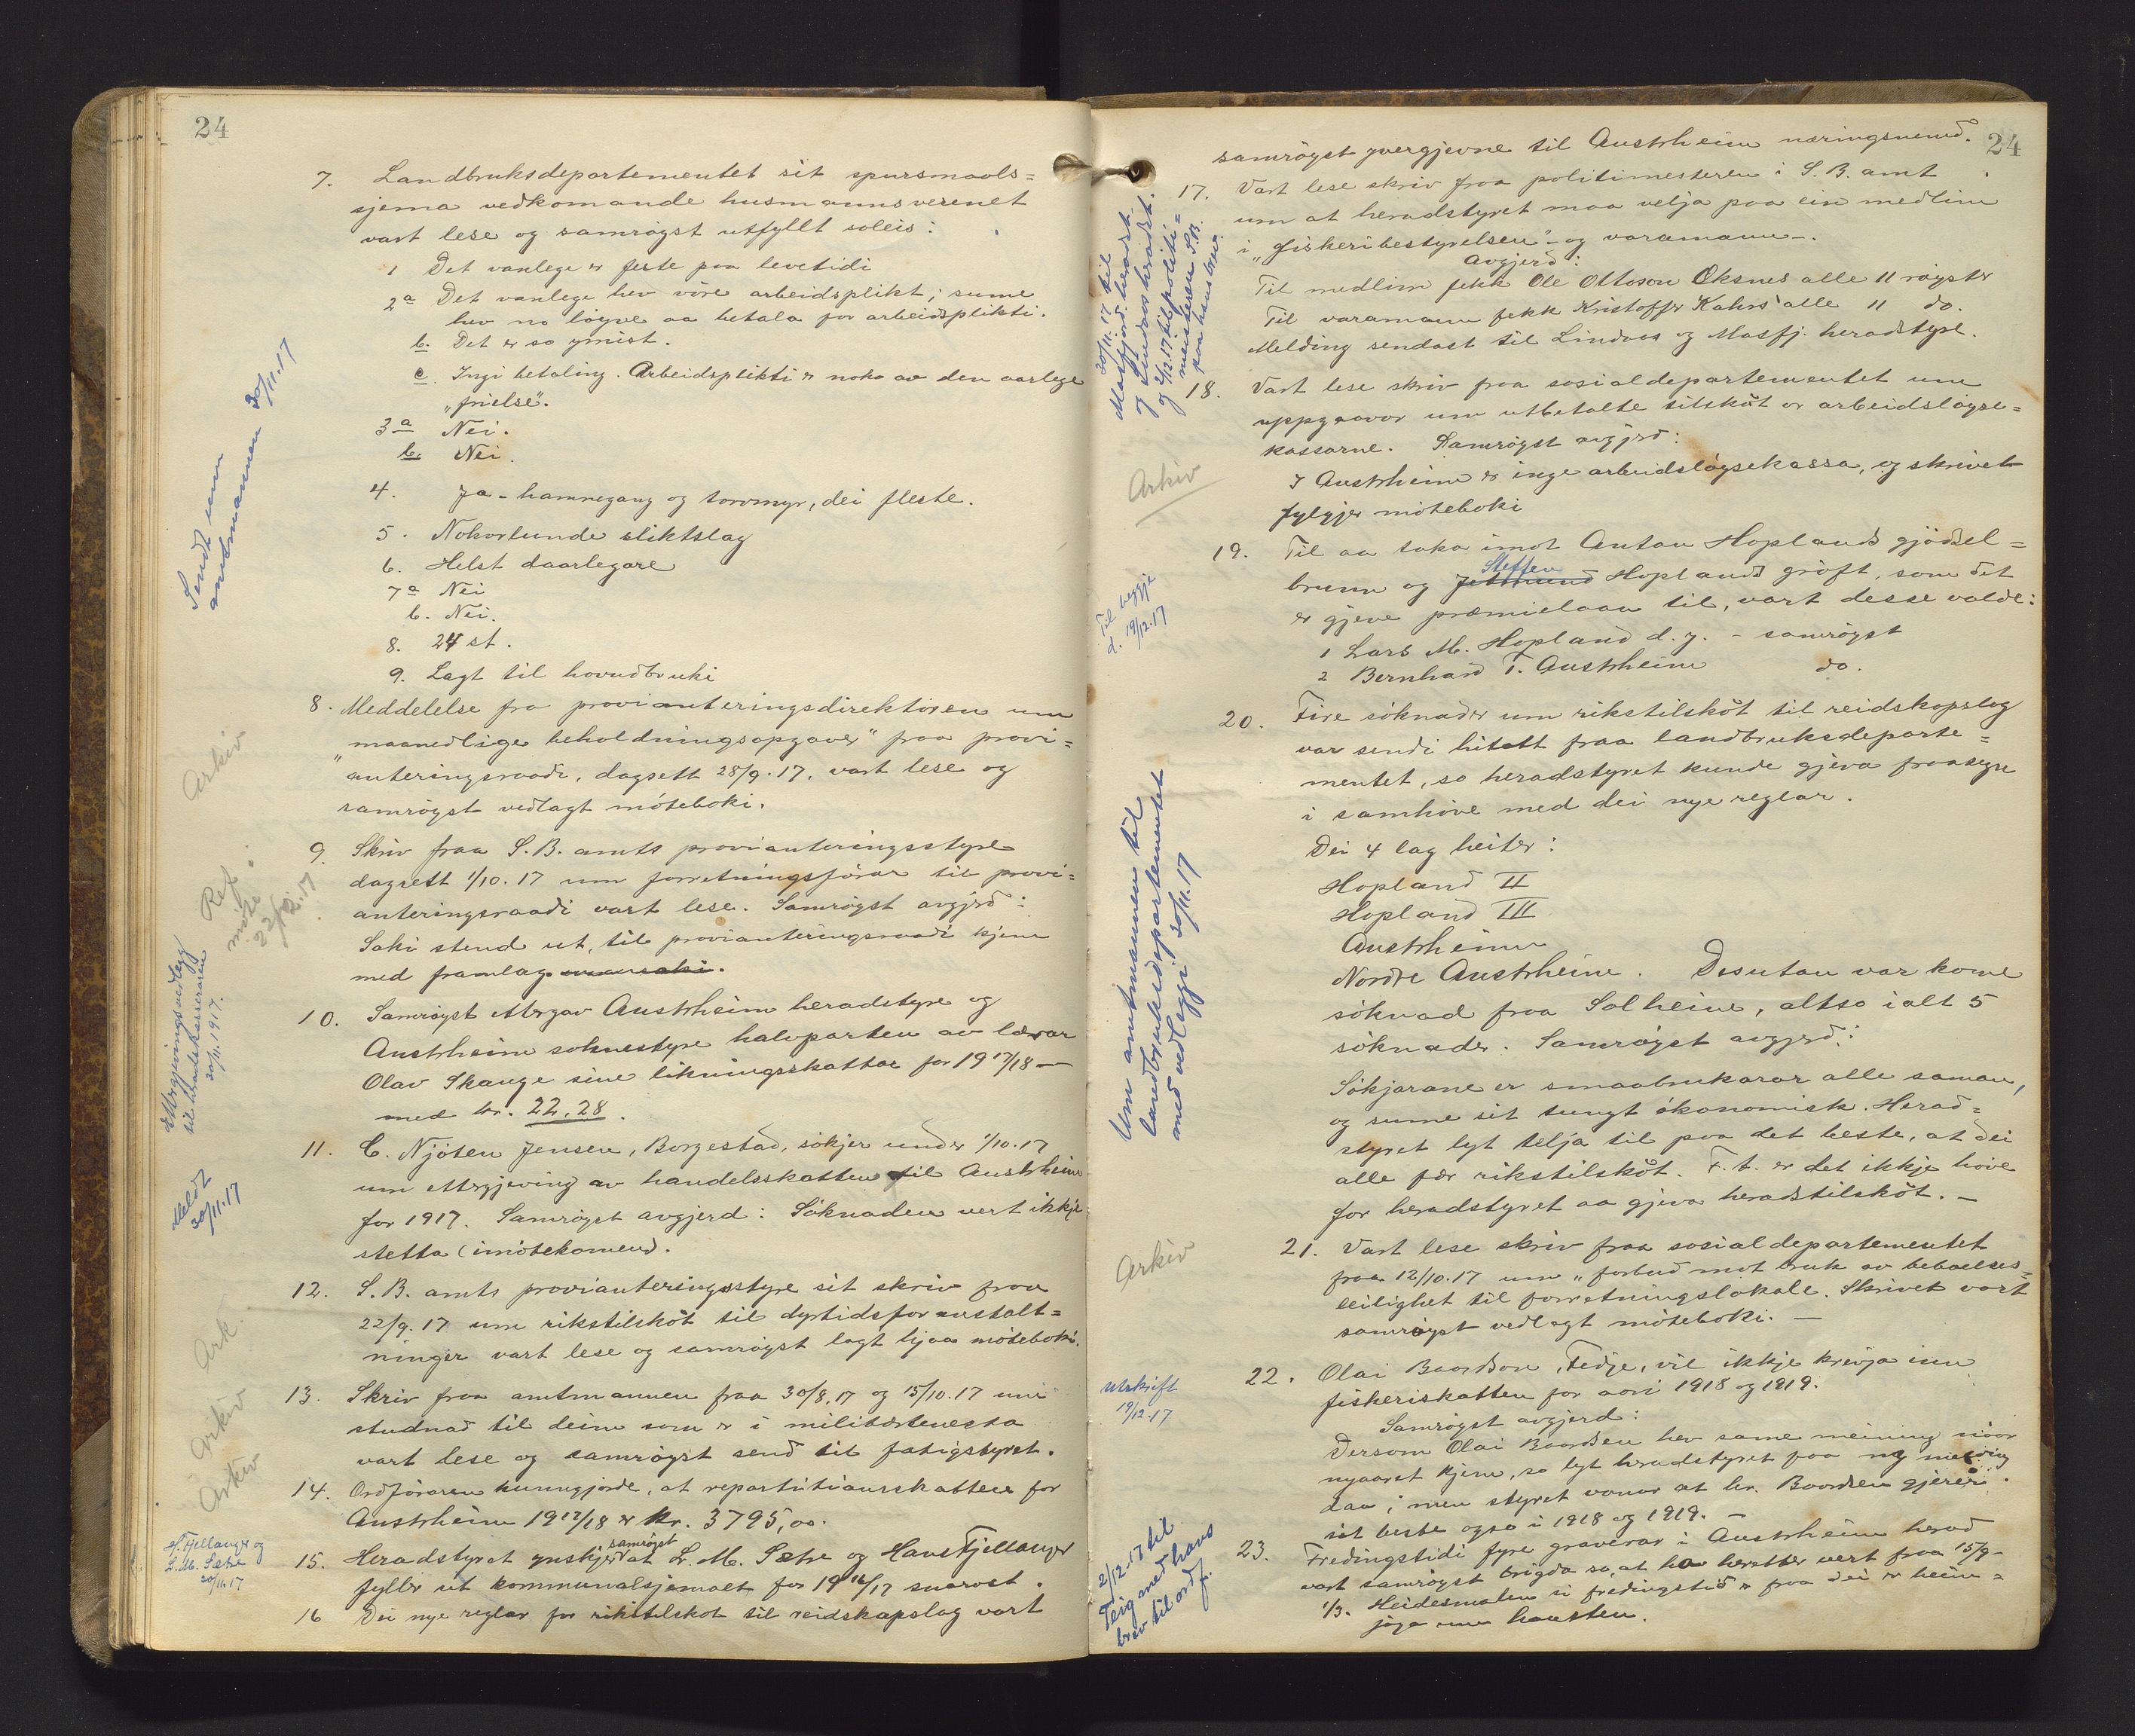 24
7. Landbruksdepartementet sit spursmaols=
sjema vedkomande husmannsverenet
vart lese og samrøyst utfyllt soleis:
1 Det vanlege er feste paa levetidi
2a Det vanlege hev vore arbeidsplikt; sume
hev no løyve aa betala for arbeidsplikti.
b. Det er so ymist.
c. Ingi betaling. Arbeidsplikti er noko av den aarlege
"frielse".
3a Nei.
b. Nei.
4. Ja - hamnegang og torvmyr, dei fleste.
5. Nokorlunde sliktslag
6. Helst daarlegare
7a Nei
b. Nei.
8. 24 st.
9. Lagt til hovudbruki
Sendt um
amtmannen 30/11.17
8. Meddelelse fra provianteringsdirektøren um
"maanedlige beholdningsopgaver" fraa provi=
anteringsraadi, dagsett 28/9.17, vart lese og
samrøyst vedlagt møteboki.
Arkiv
9. Skriv fraa S.B. amts provianteringsstyre
dagsett 1/10.17 um forretningsførar til provi=
anteringsraadi vart lese. Samrøyst avgjerd:
Saki stend ut, til provianteringsraadi kjem
med framlag
Ref.
møte
22/12.17
10. Samrøyst ettergav Austrheim heradstyre og
Austrheim soknestyre halvparten av lærar
Olav Skauge sine likningsskattar for 1917/18 —
med kr. 22.28.
Ettergjevingsvedlegg
til heradskasseraren
30/11.1917.
11. C. Njøten Jensen, Borgestad, søkjer under 1/10.17
um ettergjeving av handelsskatten til Austrheim
for 1917. Samrøyst avgjerd: Søknaden vert ikkje
stetta (imøtekomen).
Meldt
30/11.17
12. S.B. amts provianteringsstyre sit skriv fraa
22/9.17 um rikstilskøt til dyrtidsforanstalt=
ninger vart lese og samrøyst lagt hjaa møteboki.
Ark.
13. Skriv fraa amtmannen fraa 30/8.17 og 15/10.17 um
studnad til deim som er i militærtenesta
vart lese og samrøyst send til fatigstyret.
Arkiv
14. Ordføraren kunngjorde, at repartitiansskatten for
Austrheim 1917/18 er kr. 3795,00.
Arkiv
15. Heradstyret ynskjer samrøyst at L. M. Sætre og Hans Fjellanger
fyller ut kommunalsjemaet for 1916/17 snarast.
H. Fjellanger og
L.M. Sætre
30/11.17
16 Dei nye reglar for rikstilskot til reidskapslag vart
24
samrøyst yvergjevne til Austrheim næringsnemd.
17. Vart lese skriv fraa politimesteren i S.B. amt
um at heradstyret maa velja paa ein medlim
i "fiskeribestyrelsen" - og varamann -.
Avgjerd:
Til medlim fekk Ole Ottoson Oksnes alle 11 røyster
Til varamann fekk Kristoffer Kahrs alle 11 do.
Melding sendast til Lindaas og Masfj. heradstyre.
30/11.17 til
Masfjord. heradst.
og Lindaas heradst.
og 2/12.17 til politi=
meisteren S.B.
paa hans brev.
18. Vart lese skriv fraa sosialdepartementet um
uppgaavor um utbetalte tilskøt av arbeidsløyse=
kassarne. Samrøyst avgjerd:
I Austrheim er inge arbeidsløysekassa, og skrivet
fylgjer møteboki
Arkiv
19. Til aa taka imot Antan Hoplands gjødsel=
brunn og Steffen Hoplands grøft, som det
er gjeve præmielaan til, vart desse valde:
1 Lars M. Hopland d.y. - samrøyst
2 Bernhard T. Austrheim do.
Til beggje
d. 19/12.17
20. Fire søknader um rikstilskøt til reidskapslag
var sendi hitatt fraa landbruksdeparte=
mentet, so heradstyret kunde gjeva fraasegn
i samhøve med dei nye reglar.
Dei 4 lag heiter:
Hopland II
Hopland III
Austrheim
Nordre Austrheim. Desutan var kome
søknad fraa Solheim, altso ialt 5
søknader. Samrøyst avgjerd:
Søkjarane er smaabrukarar alle saman,
og sume sit tungt økonomisk. Herad=
styret lyt telja til paa det beste, at dei
alle fær rikstilskøt. F.t. er det ikkje høve
for heradstyret aa gjeva heradstilskøt. —
Um amtmannen til
landbruksdepartementet
med vedlegg 30/11.17
21. Vart lese skriv fraa sosialdepartementet
fraa 12/10.17 um "forbud mot bruk av beboelses=
leilighet til forretningslokale. Skrivet vart
samrøyst vedlagt møteboki. —
Arkiv
22. Olai Baardson, Fedje, vil ikkje krevja inn
fiskeriskatten for aari 1918 og 1919.
Samrøyst avgjerd:
Dersom Olai Baardsen hev same meining naar
nyaaret kjem, so lyt heradstyret faa ny melding
daa; men styret vonar at hr. Baardsen gjerer
sit beste ogso i 1918 og 1919. —
Utskrift
19/12.17
23. Fredingstidi fyre graverar i Austrheim herad
vart samrøyst brigda so, at ho heretter vert fraa 15/9-
1/3. Heidesmalen si fredingstid er fraa dei er heim=
jaga um hausten.
2/12.17 til
Teig med hans
brev til ordf.